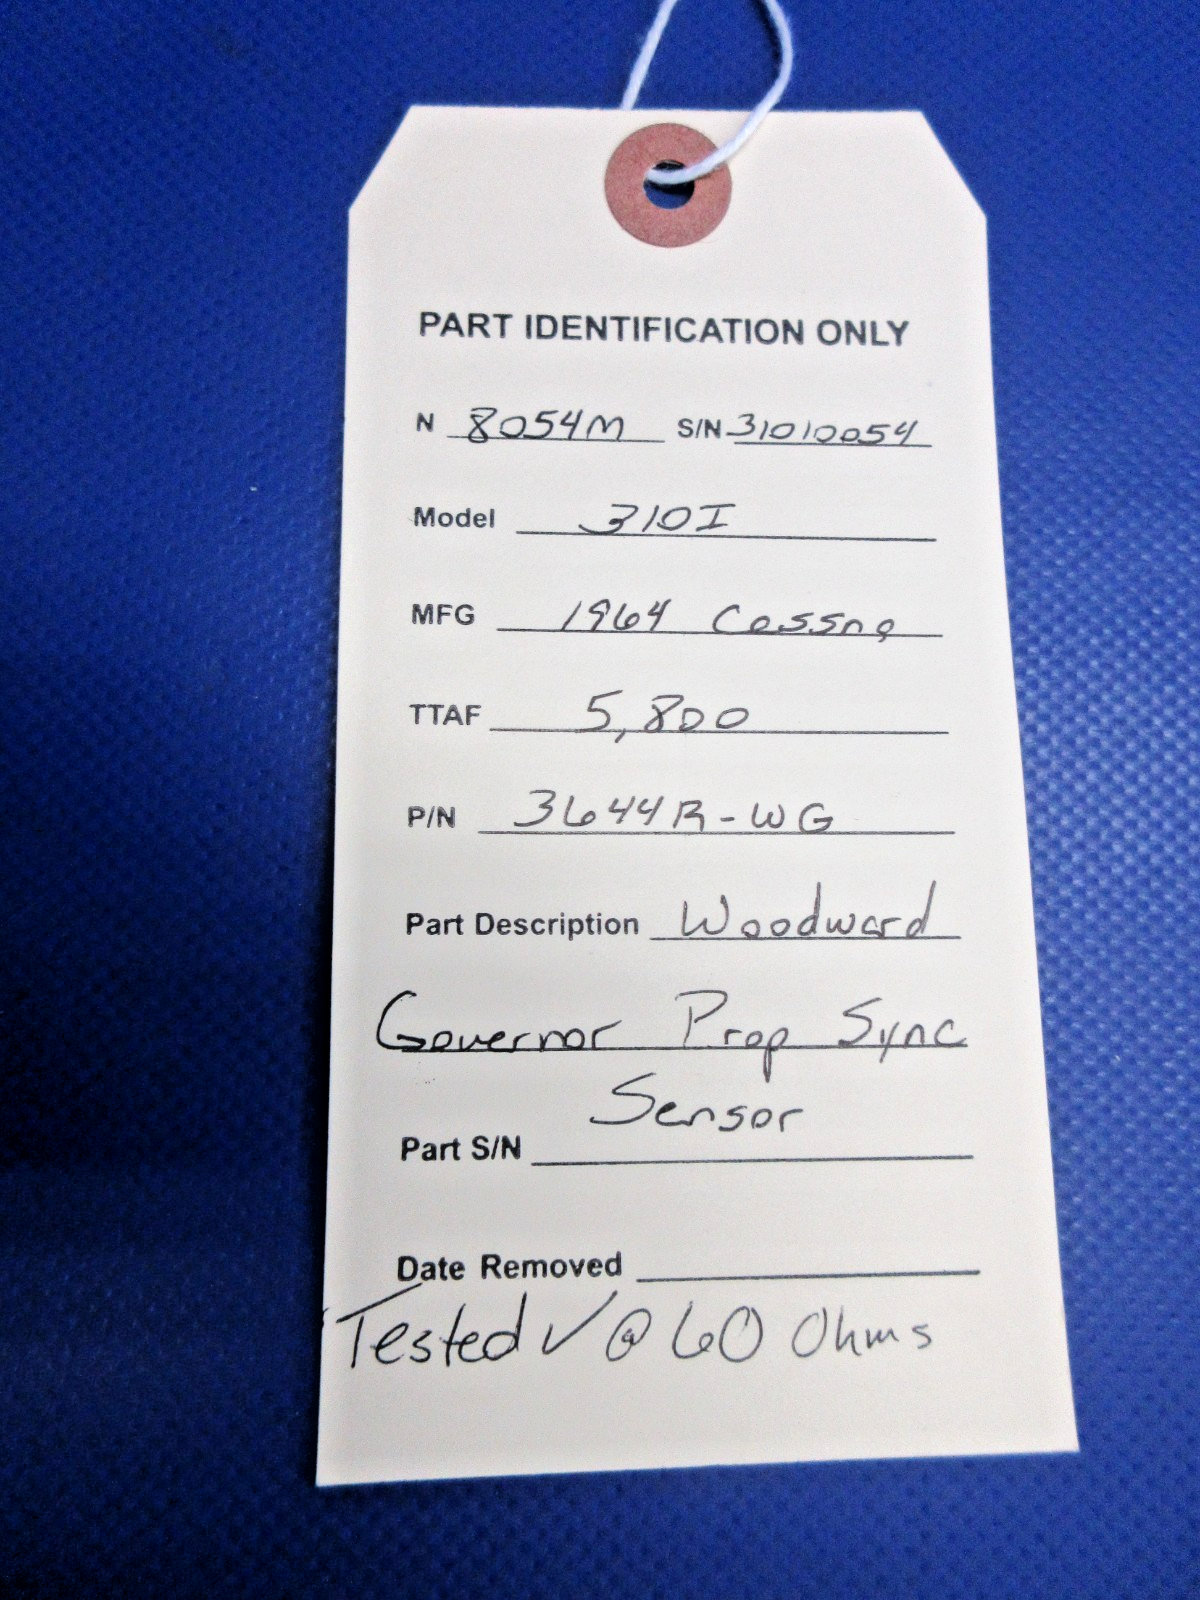 PART IDENTIFICATION ONLY
N 8054M S/N 31010054
Model 310I
MFG 1964 Cessna
TTAF 5,800
P/N 3644R-WG
Part Description Woodward
Governor Prop Sync
Sensor
Part S/N
Date Removed
Tested ✓ @ 60 Ohms